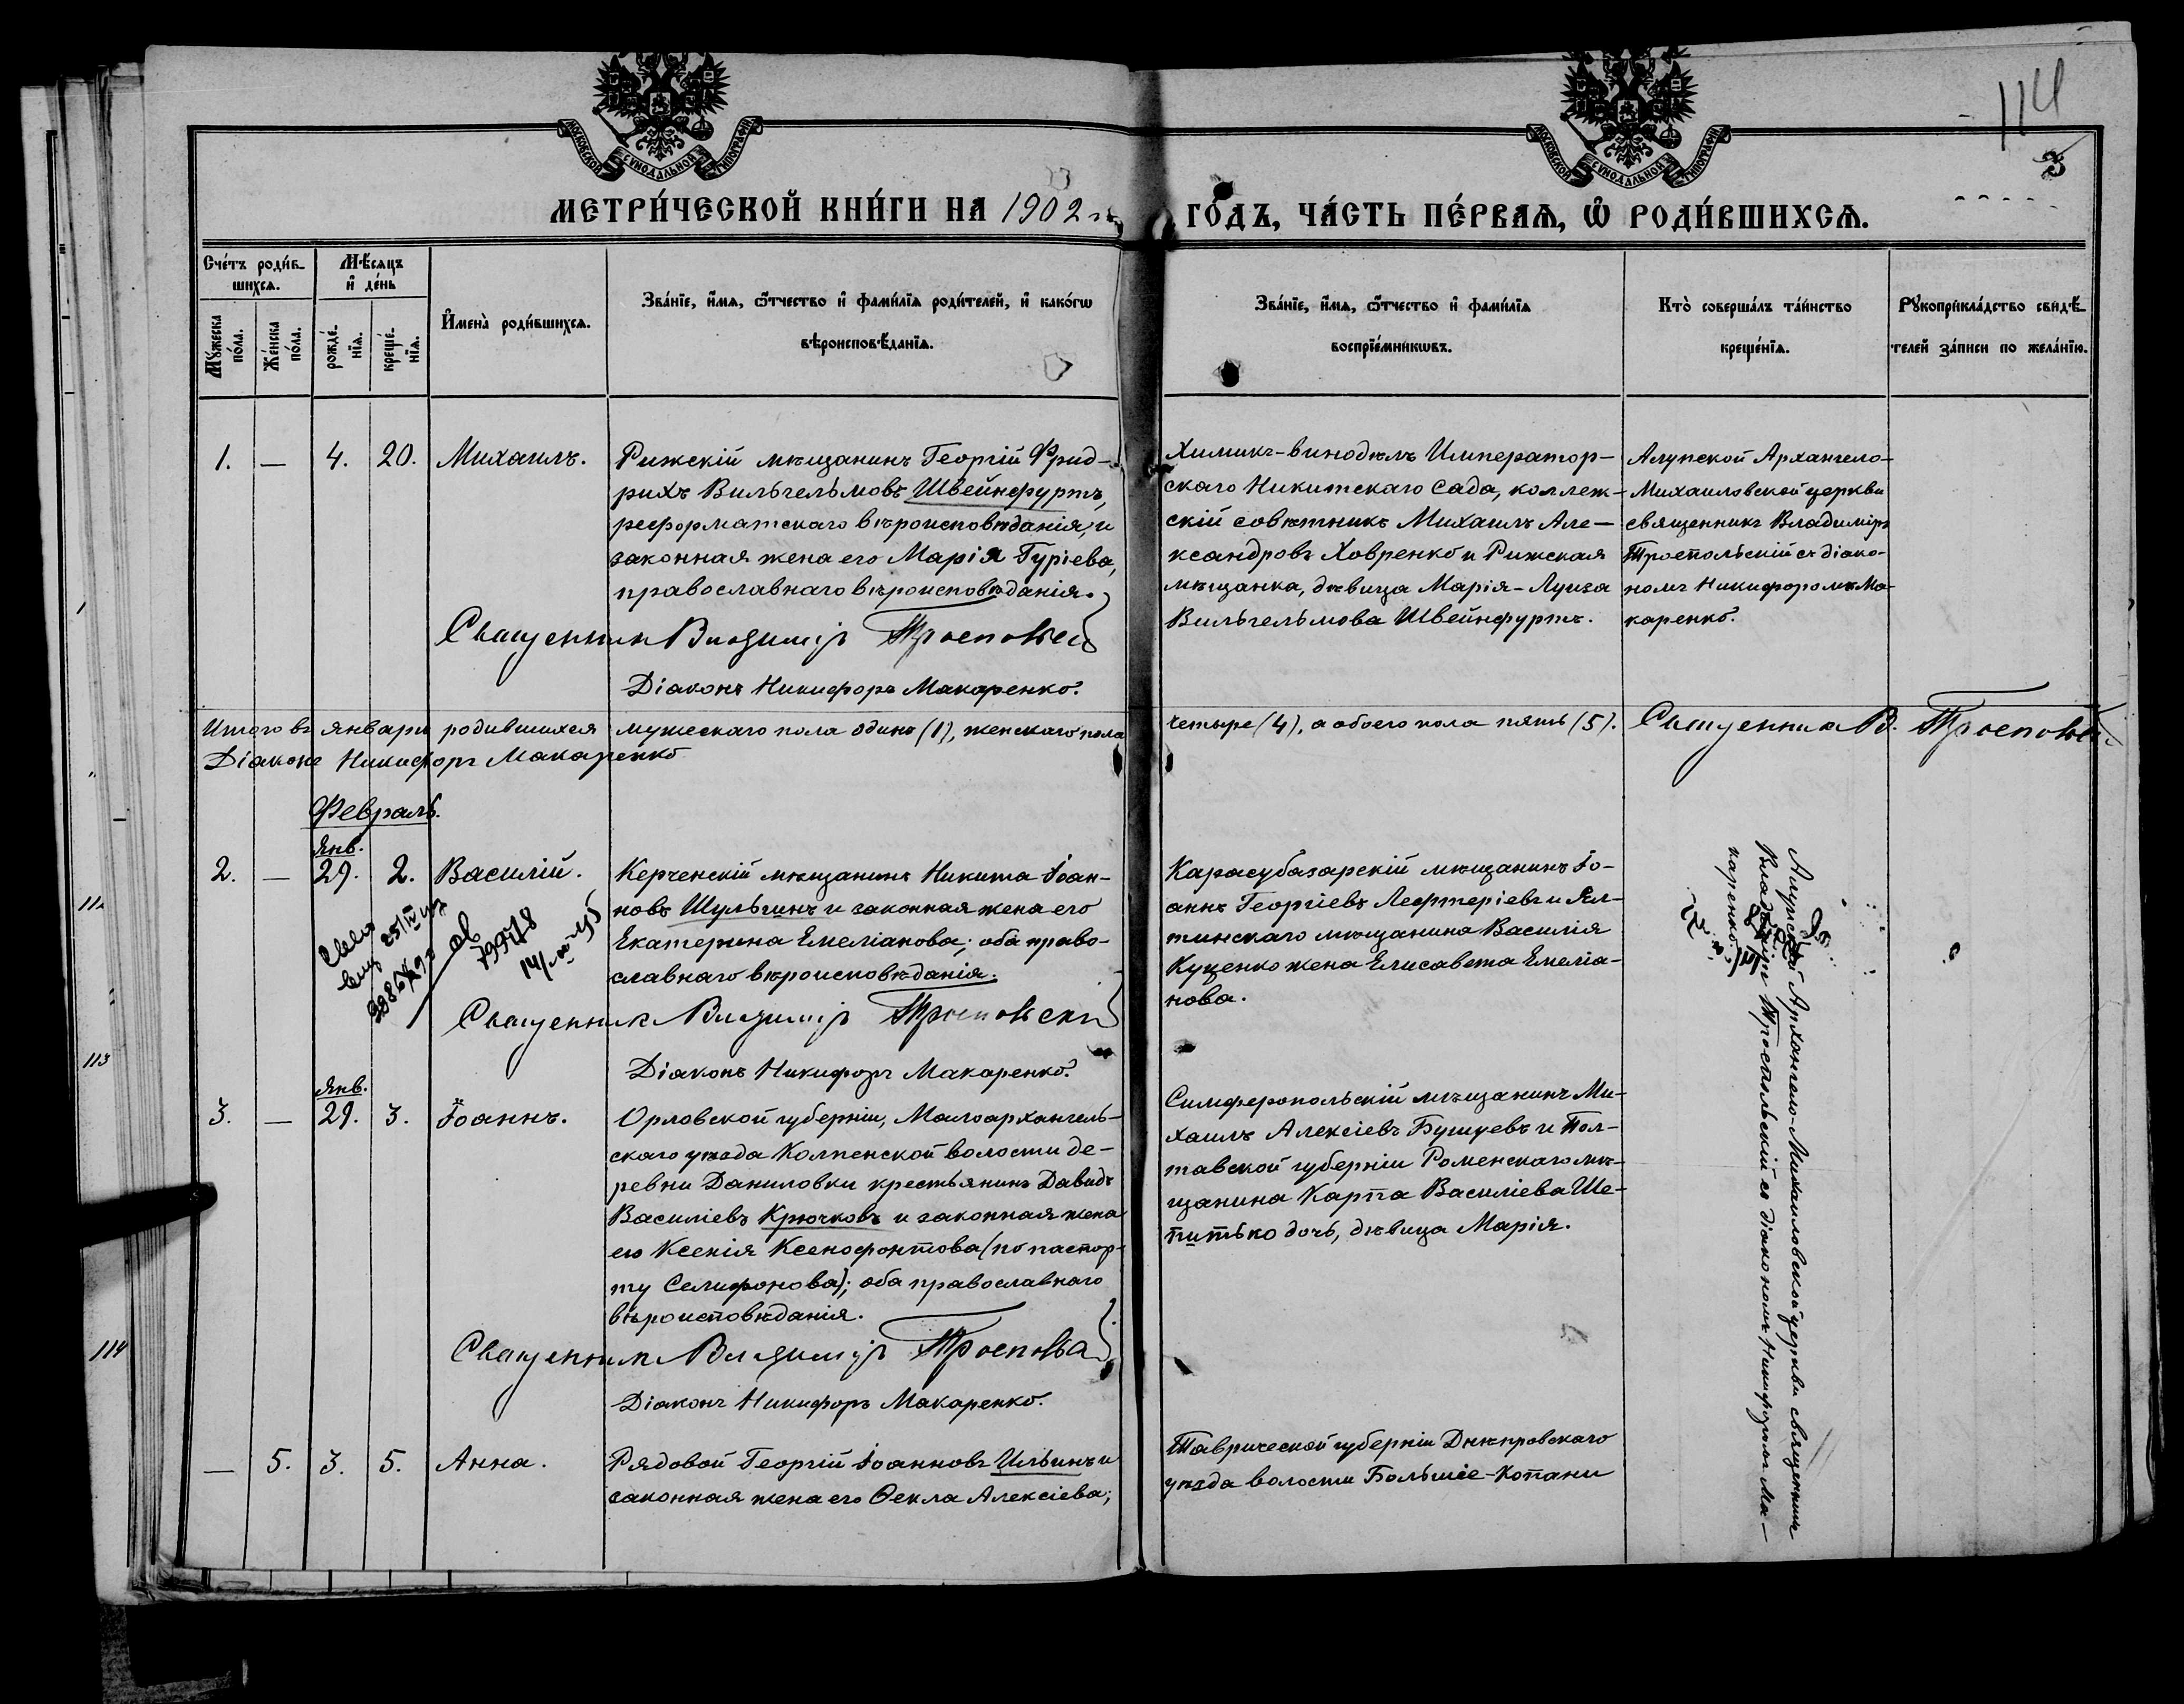 114
3
МОСКОВСКОЙ СѴНОДАЛЬНОЙ ТИПОГРАФІИ
МОСКОВСКОЙ СѴНОДАЛЬНОЙ ТИПОГРАФІИ
МЕТРИ́ЧЕСКОЙ КНИ́ГИ НА 1902 г. ГО́ДЪ, ЧА́СТЬ ПЕ́РВАѦ, Ѽ РОДИ́ВШИХСѦ.
Сче́тъ роди́в-
шихсѧ.
Мѣ́сѧцъ
и҆ де́нь
Мꙋ́жеска по́ла.
Же́нска по́ла.
рожде́-
нїѧ.
креще́-
нїѧ.
И҆мена̀ роди́вшихсѧ.
Зва́нїе, и҆́мѧ, ѻ҆́тчество и҆ фами́лїѧ роди́телей, и҆ како́гѡ
вѣроисповѣ́данїѧ.
Зва́нїе, и҆́мѧ, ѻ҆́тчество и҆ фами́лїѧ
воспрїе́мникѡвъ.
Кто̀ соверша́лъ та́инство
креще́нїѧ.
Рꙋкоприкла́дство свидѣ́-
телей за́писи по жела́нїю.
1. — 4. 20. Михаилъ.
Рижскій мѣщанинъ Георгій Фрид-
рихъ Вильгельмовъ Швейнфуртъ,
реформатскаго вѣроисповѣданія, и
законная жена его Марія Гуріева,
православнаго вѣроисповѣданія.
Священникъ Владиміръ Троепольскій
Діаконъ Никифоръ Макаренко.
Химикъ-винодѣлъ Император-
скаго Никитскаго Сада, коллеж-
скій совѣтникъ Михаилъ Але-
ксандровъ Ховренко и Рижская
мѣщанка, дѣвица Марія-Луиза
Вильгельмова Швейнфуртъ.
Алупской Архангело-
Михаиловской церкви
священникъ Владиміръ
Троепольскій съ діако-
номъ Никифоромъ Ма-
каренко.
Итого въ январѣ родившихся мужескаго пола одинъ (1), женскаго пола четыре (4), а обоего пола пять (5). Священникъ В. Троепольскій
Діаконъ Никифоръ Макаренко
Февраль.
Янв.
2. — 29. 2. Василій.
Керченскій мѣщанинъ Никита Іоан-
новъ Шульгинъ и законная жена его
Екатерина Емеліанова; оба право-
славнаго вѣроисповѣданія.
Священникъ Владиміръ Троепольскій
Діаконъ Никифоръ Макаренко.
Карасубазарскій мѣщанинъ Іо-
аннъ Георгіевъ Лефтеріевъ и Ял-
тинскаго мѣщанина Василія
Куценко жена Елисавета Емеліа-
нова.
Алупской Архангело-Михаиловской церкви священникъ
Владиміръ Троепольскій съ діакономъ Никифоромъ Ма-
каренко.
Янв.
3. — 29. 3. Іоаннъ.
Орловской губерніи, Малоархангель-
скаго уѣзда Колпенской волости де-
ревни Даниловки крестьянинъ Давидъ
Василіевъ Крючковъ и законная жена
его Ксенія Ксенофонтова (по паспор-
ту Селифонова); оба православнаго
вѣроисповѣданія.
Священникъ Владиміръ Троепольскій
Діаконъ Никифоръ Макаренко.
Симферопольскій мѣщанинъ Ми-
хаилъ Алексіевъ Бушуевъ и Пол-
тавской губерніи Роменскаго мѣ-
щанина Карпа Василіева Ше-
питько дочь, дѣвица Марія.
— 5. 3. 5. Анна.
Рядовой Георгій Іоанновъ Ильинъ и
законная жена его Ѳекла Алексіева;
Таврической губерніи Днѣпровскаго
уѣзда волости Большіе-Копани
112
113
114